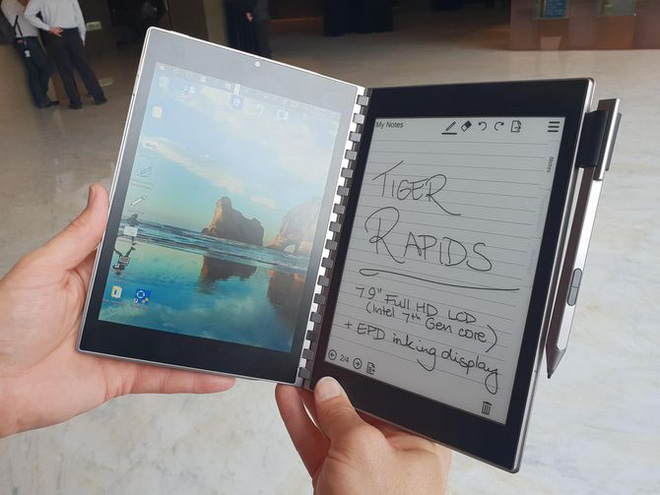 My Notes
Notes
TIGER
RAPIDS
7.9" Full HD LCD
(Intel 7th Gen core)
+ EPD inking display
2/4